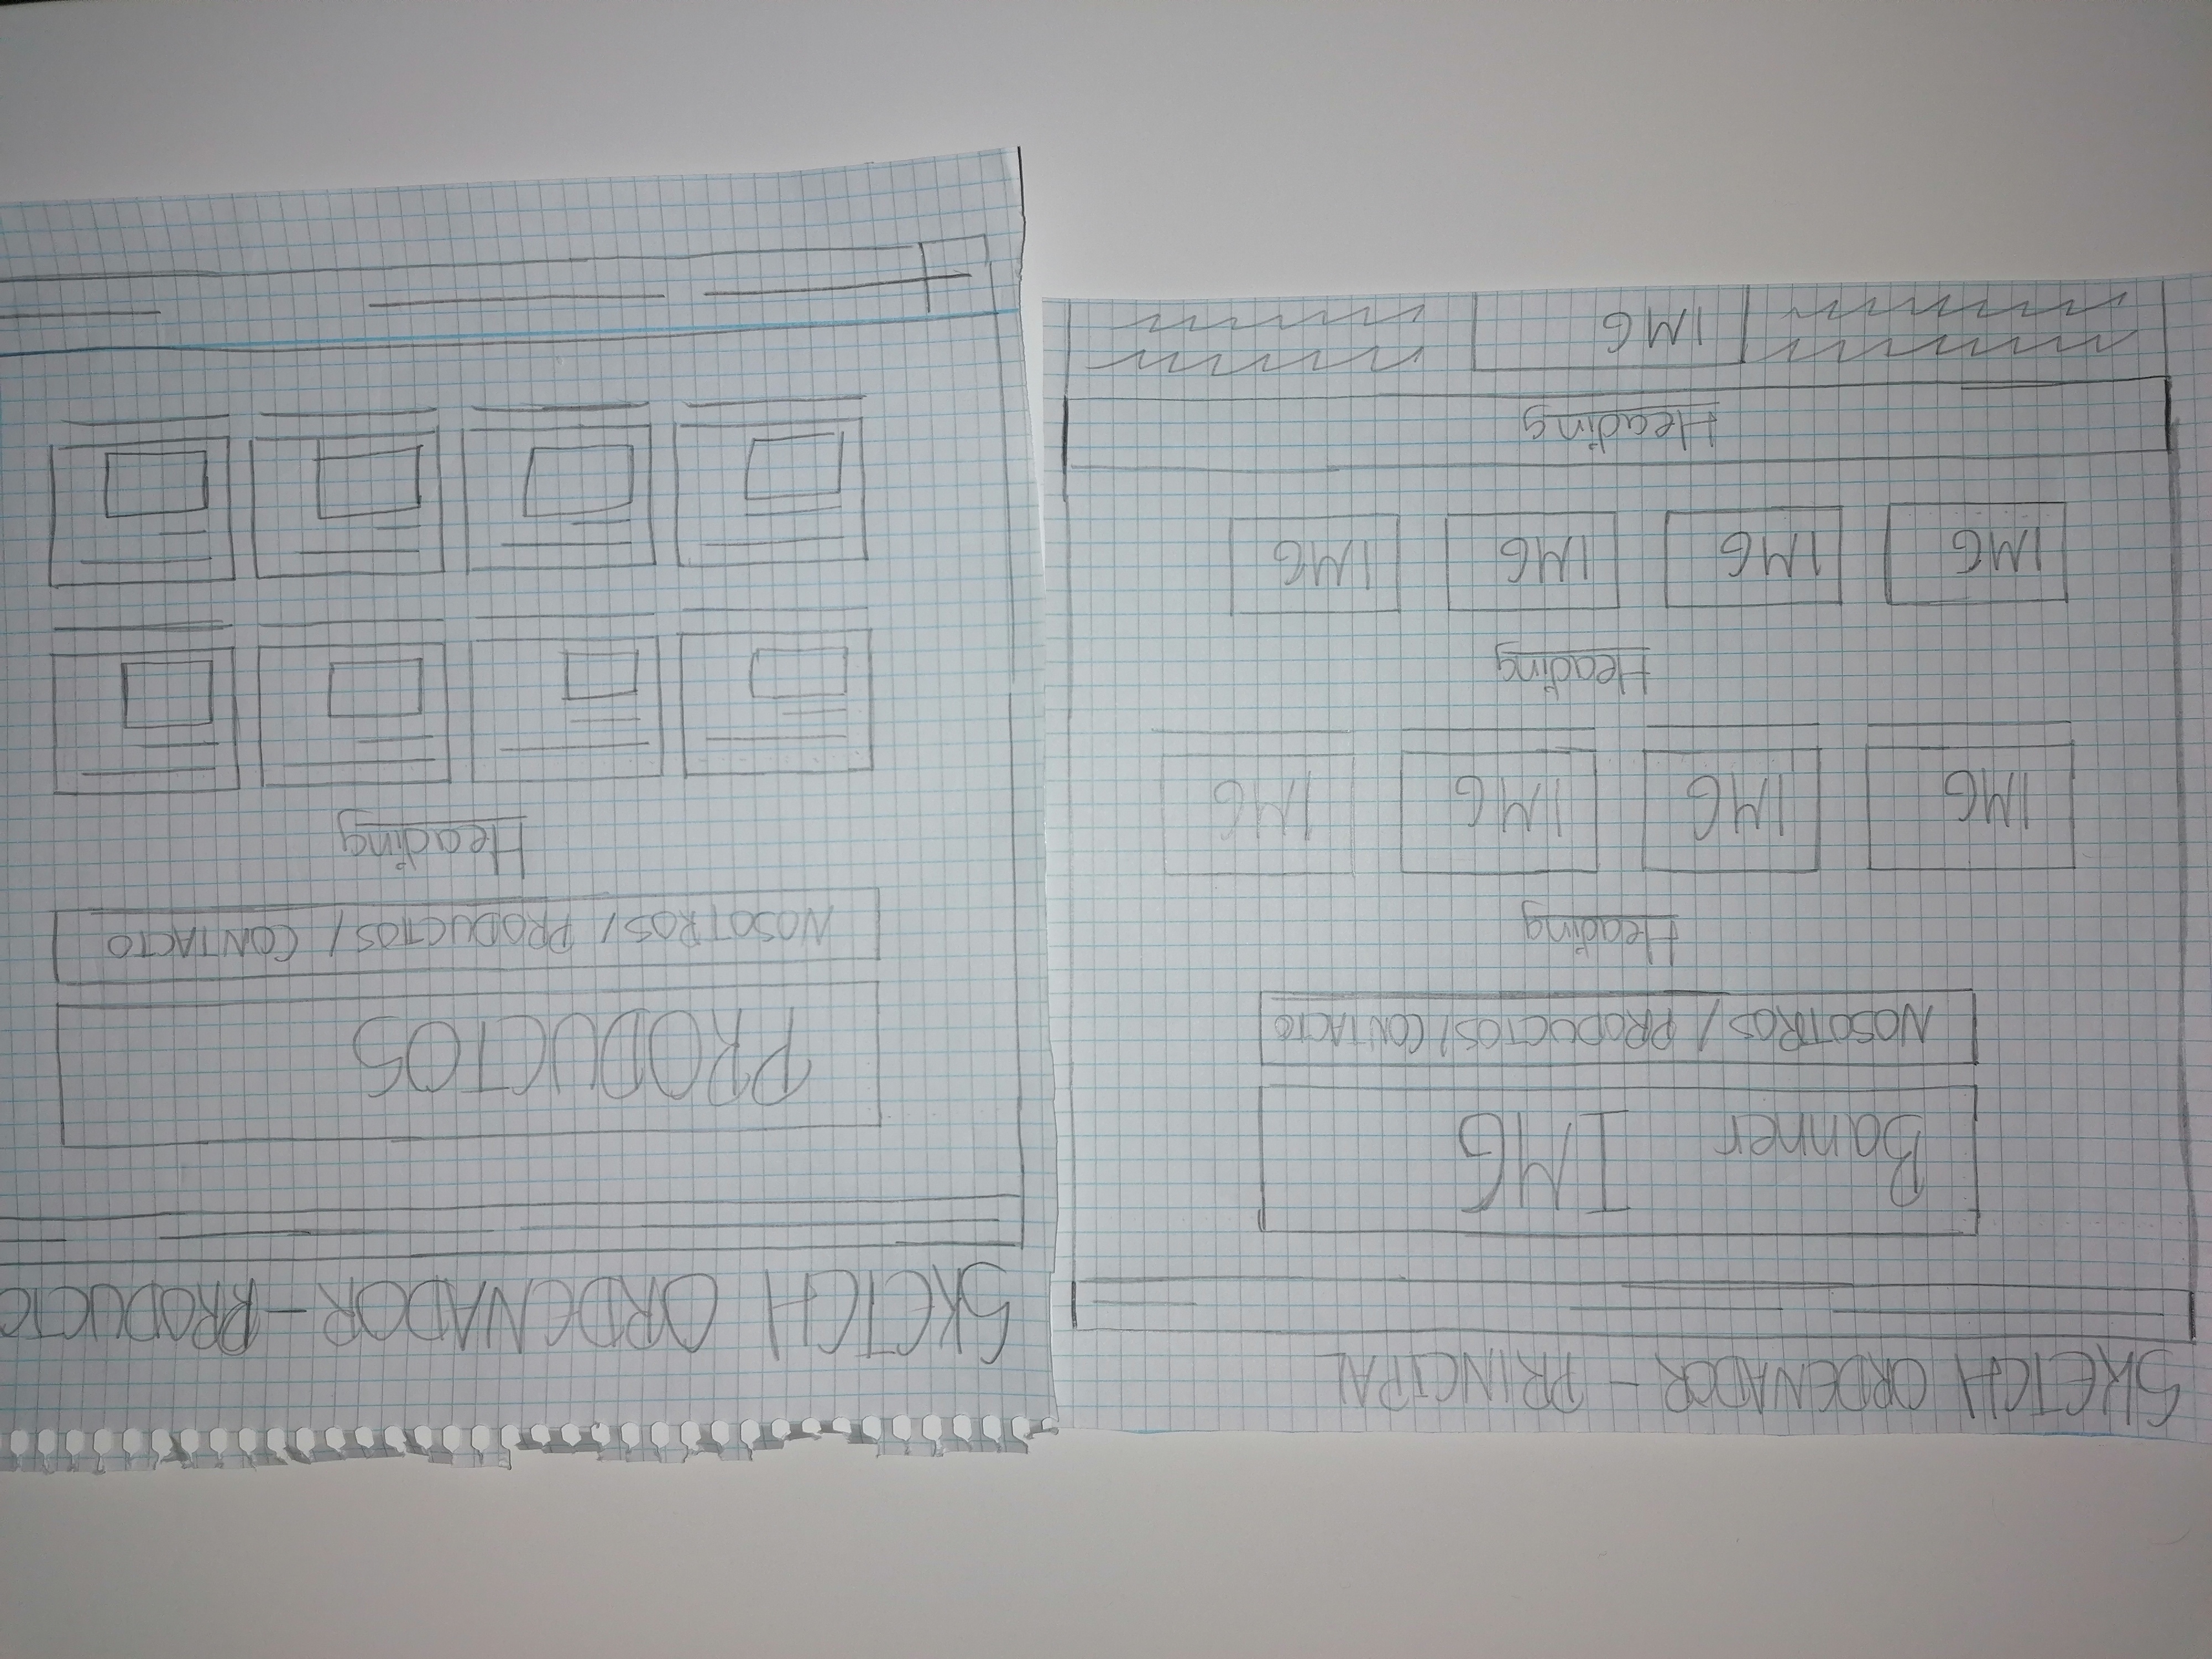 SKETCH ORDENADOR - PRINCIPAL
Banner IMG
NOSOTROS / PRODUCTOS / CONTACTO
Heading
IMG IMG IMG IMG
Heading
IMG IMG IMG IMG
Heading
IMG
SKETCH ORDENADOR - PRODUCTO
PRODUCTOS
NOSOTROS / PRODUCTOS / CONTACTO
Heading